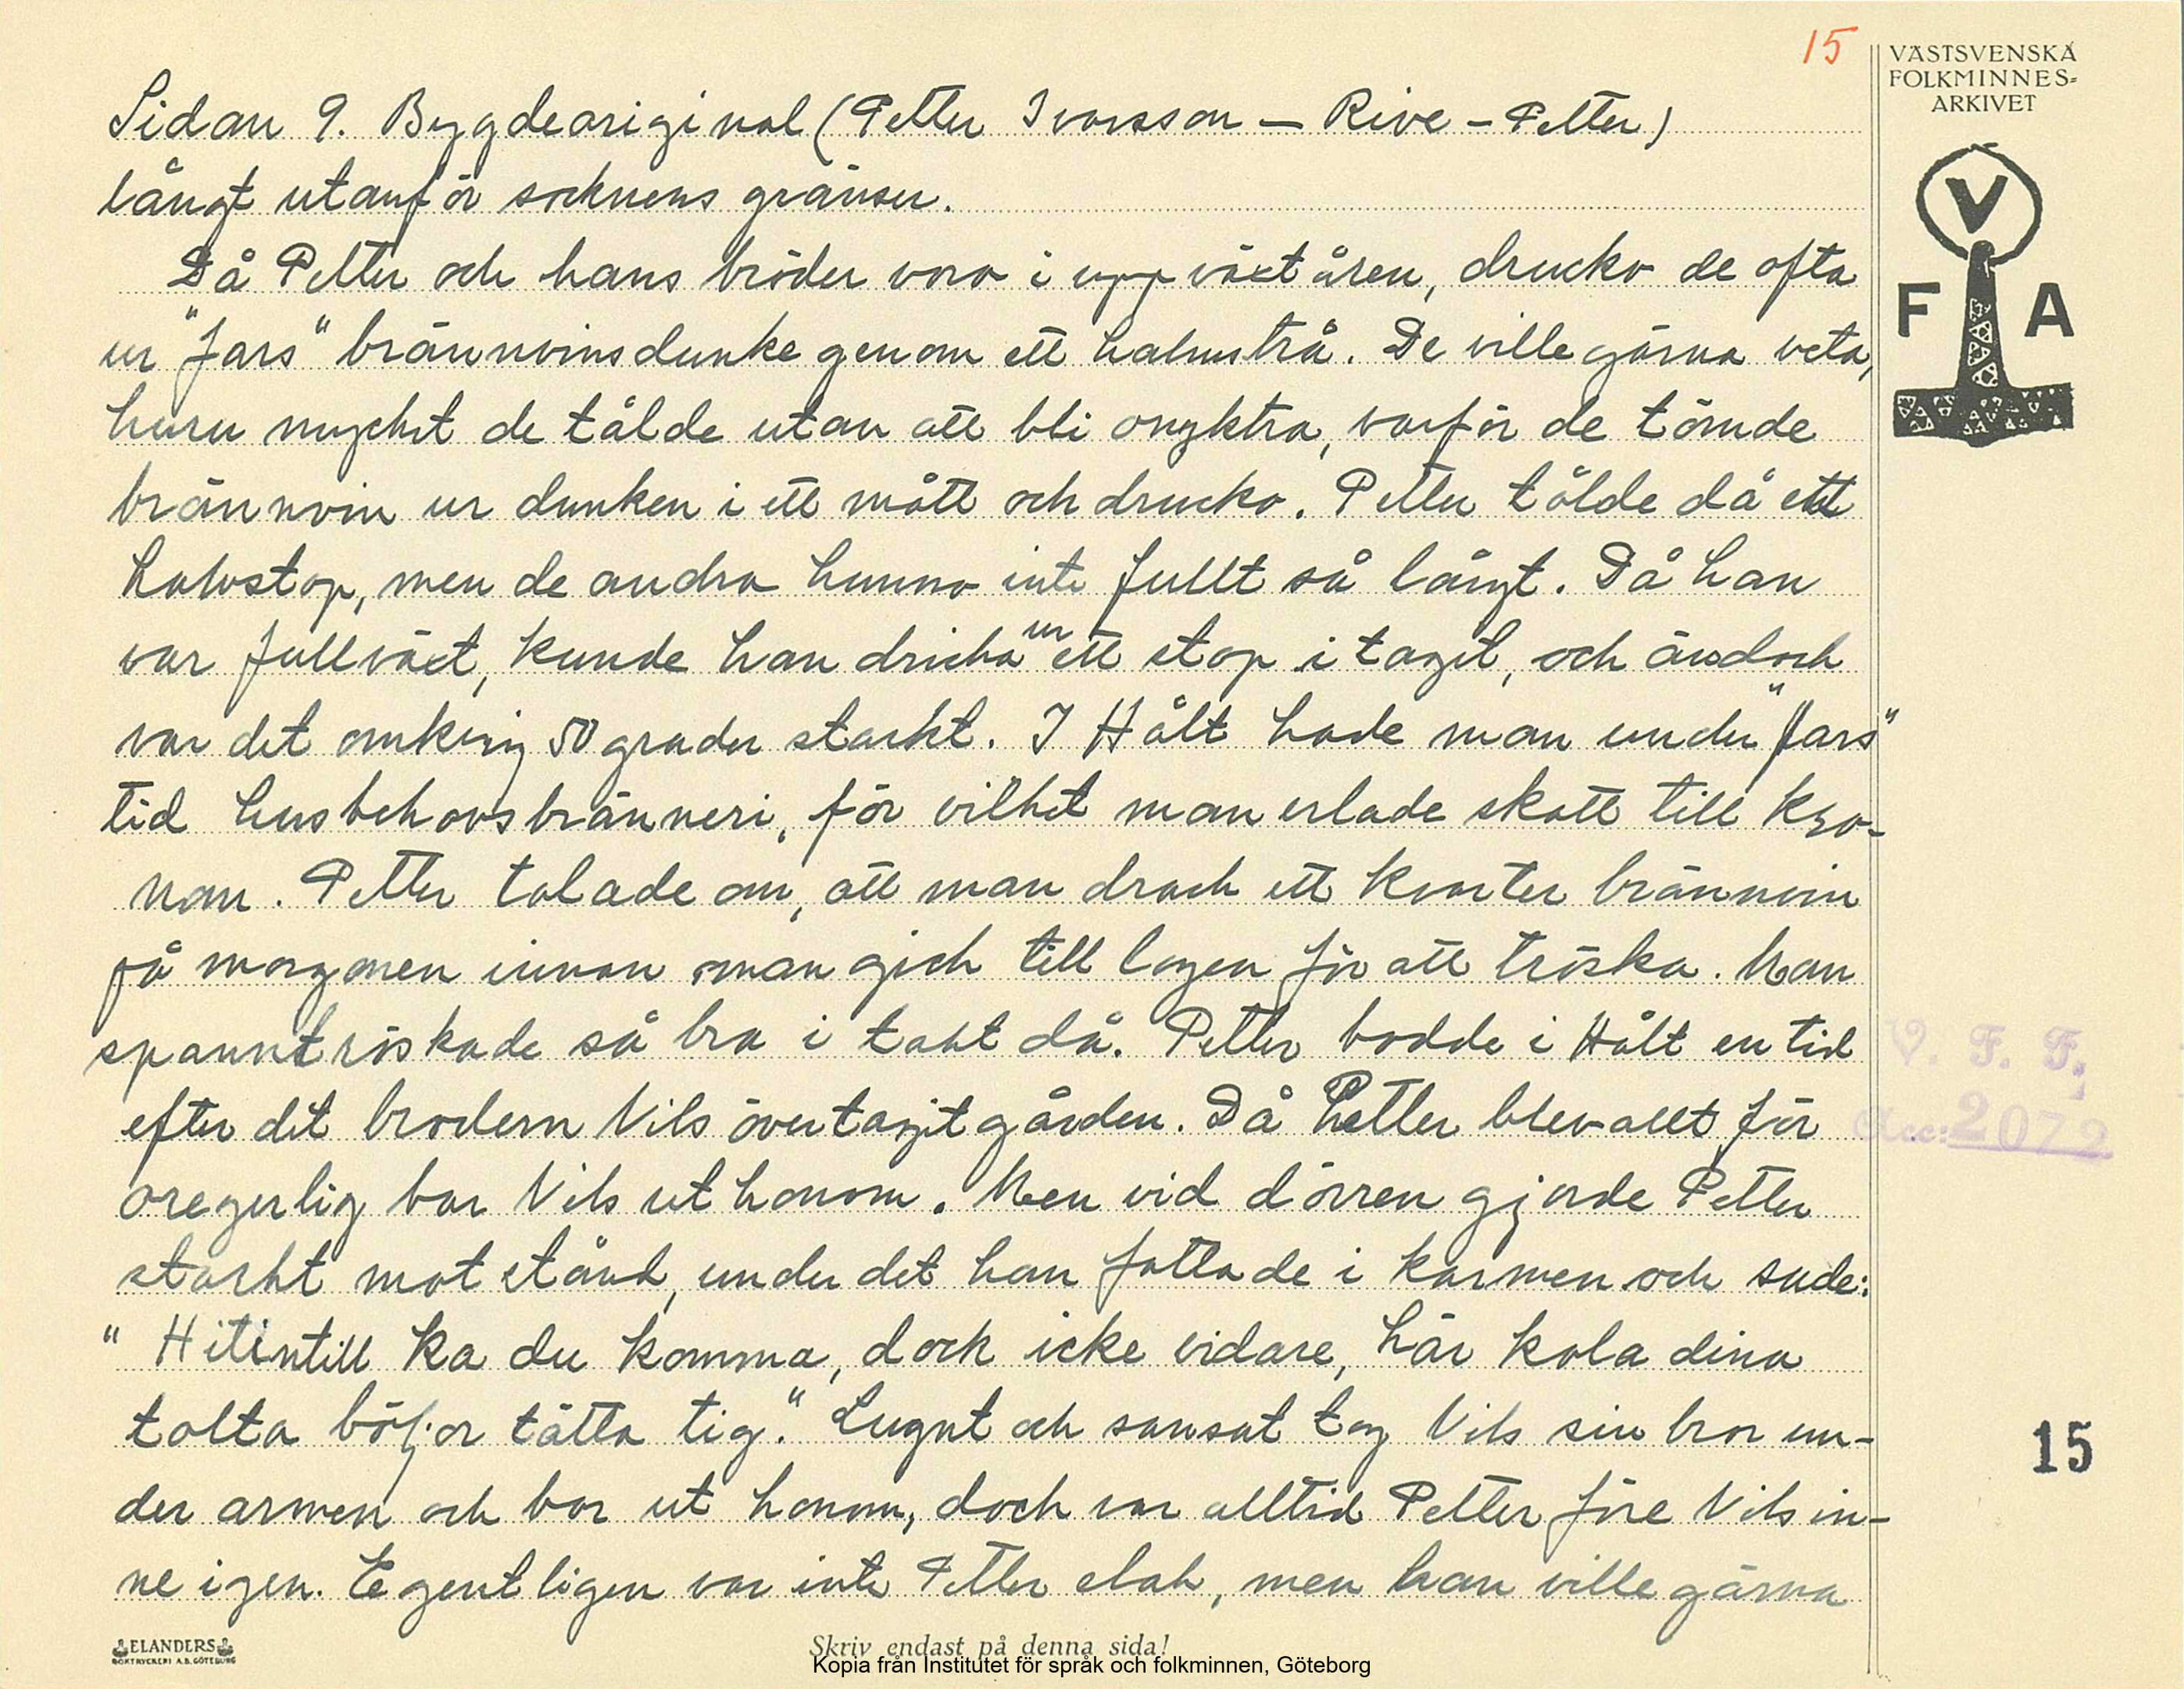 15
VÄSTSVENSKA
FOLKMINNES-
ARKIVET
V
F A
Sidan 9. Bygdeoriginal (Petter Ivarsson — Rive - Petter)
långt utanför socknens gränser.
Då Petter och hans bröder voro i uppväxtåren, drucko de ofta
ur "fars" brännvinsdunke genom ett halmstrå. De ville gärna veta,
huru mycket de tålde utan att bli onyktra, varför de tömde
brännvin ur dunken i ett mått och drucko. Petter tålde då ett
halvstop, men de andra hunno inte fullt så långt. Då han
var fullväxt, kunde han dricka ur ett stop i taget, och ändock
var det omkring 50 grader starkt. I Hålt hade man under "fars"
tid husbehovsbränneri, för vilket man erlade skatt till kro-
nan. Petter talade om, att man drack ett kvarter brännvin
på morgonen innan man gick till logen för att tröska. Man
spanntröskade så bra i takt då. Petter bodde i Hålt en tid
efter det brodern Nils övertagit gården. Då Petter blev allt för
oregerlig bar Nils ut honom. Men vid dörren gjorde Petter
starkt motstånd, under det han fattade i karmen och sade:
" Hitintill ka du komma, dock icke vidare, här kola dina
tolta böljor tätta tig." Lugnt och sansat tog Nils sin bror un-
der armen och bar ut honom, doch var alltid Petter före Nils in-
ne igen. Egentligen var inte Petter elak, men han ville gärna
V. F. F.
Acc: 2072
15
ELANDERS
BOKTRYCKERI A.B. GÖTEBORG
Skriv endast på denna sida!
Kopia från Institutet för språk och folkminnen, Göteborg